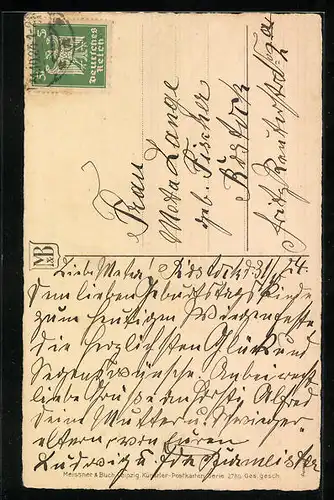 5 5
Deutsches
Reich
Frau
Meta Lange
geb. Fischer
Rostock
Fritz Reuterstr.
MB
Liebe Meta! Rostock d. 31. 24.
dem lieben Geburtstags Kinde
zum heutigen Wiegenfeste
die herzlichsten Glück und
Segenswünsche. Anbei
liebe Grüße an Alfred
Deine Mutter u. Schwieger-
eltern von Euren
Ludwig u. Ida
Meissner & Buch Leipzig. Künstler-Postkarten Serie 2780. Ges. gesch.